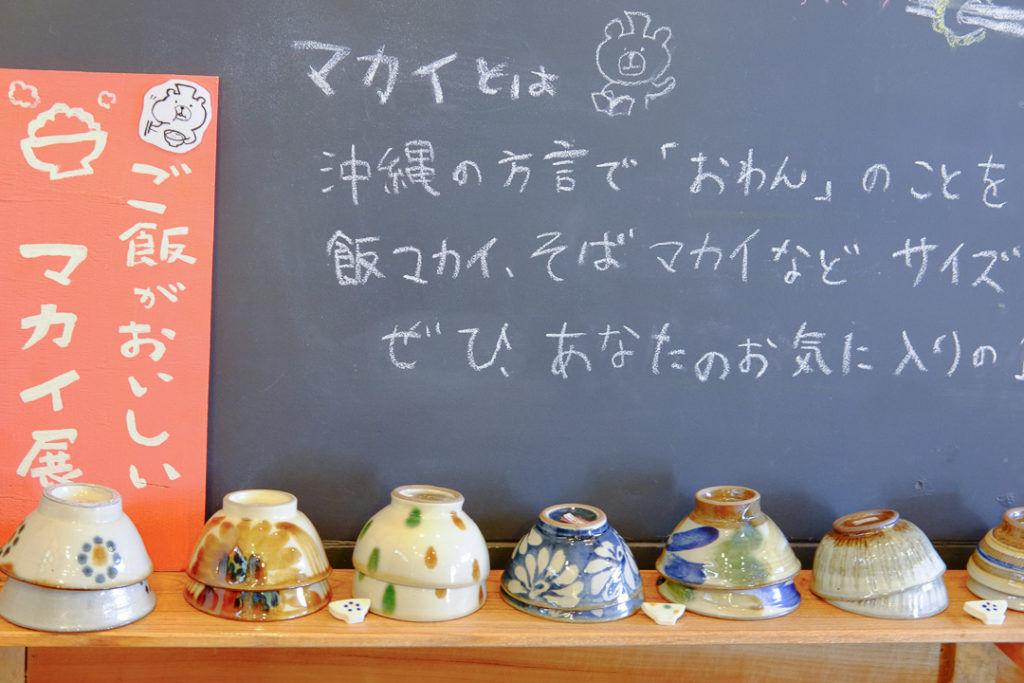 ご飯がおいしい
マカイ展
マカイとは
沖縄の方言で「おわん」のことを
飯マカイ、そばマカイなど サイズ
ぜひ、あなたのお気に入りの